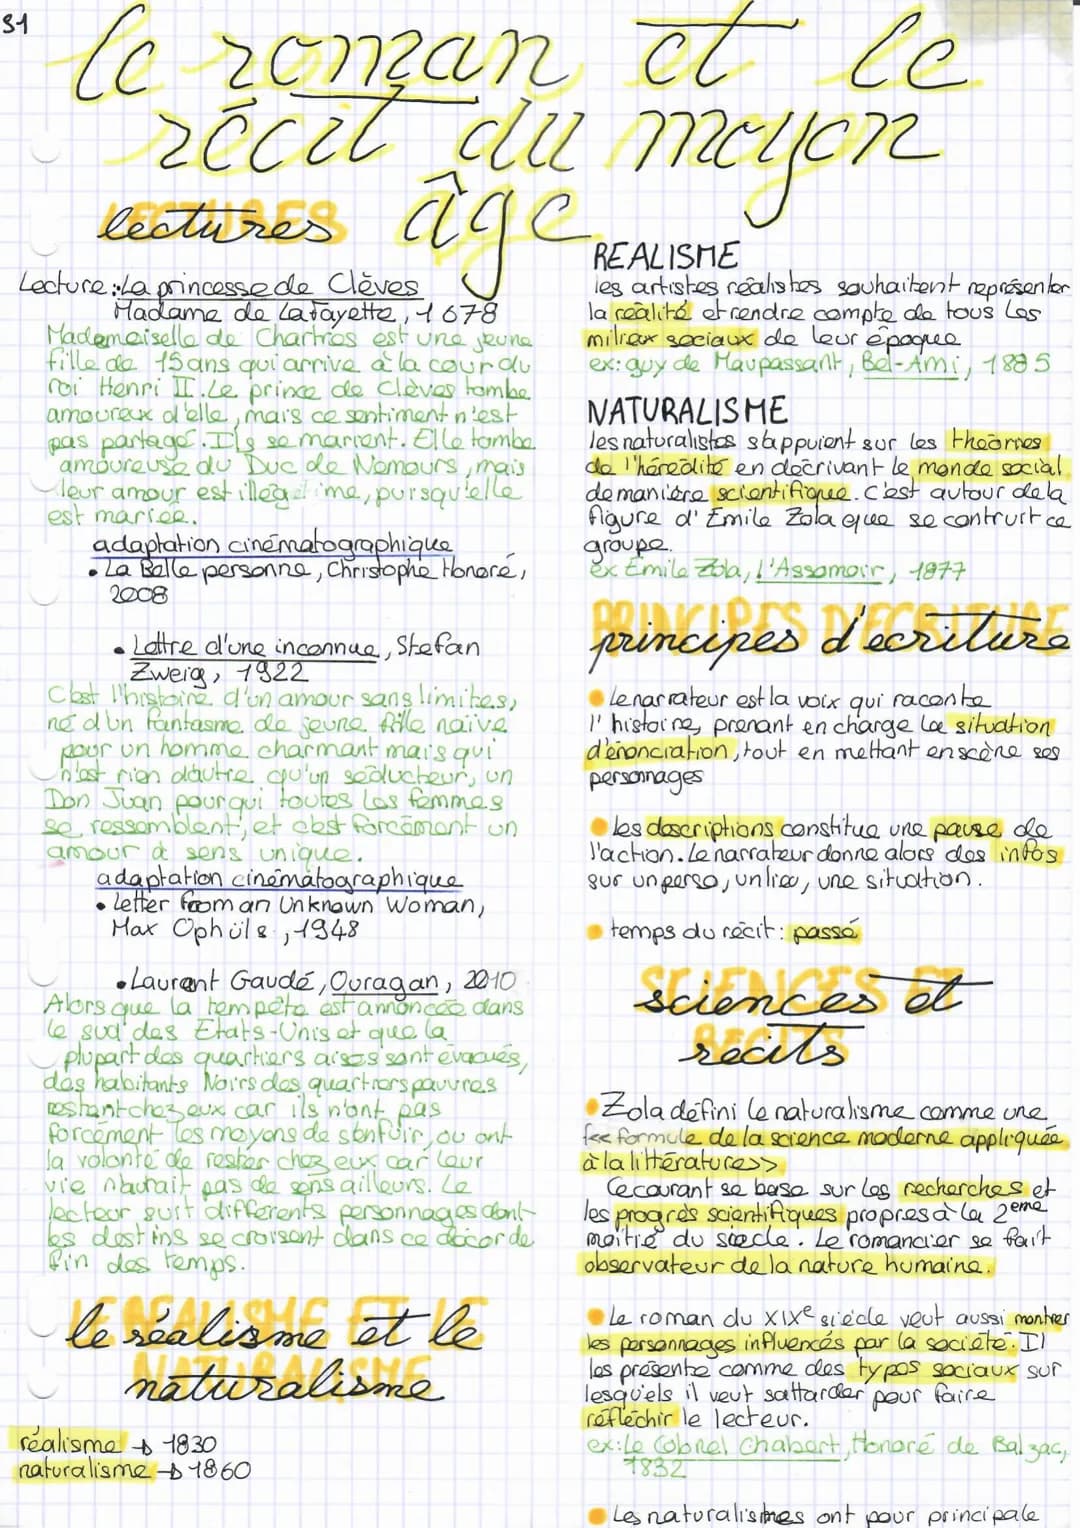 S1
le roman et le
récit du moyen
âge
LECTURES
lectures
Lecture : La princesse de Clèves
Madame de Lafayette, 1678
Mademoiselle de Chartres est une jeune
fille de 15 ans qui arrive à la cour du
roi Henri II. Le prince de Clèves tombe
amoureux d'elle, mais ce sentiment n'est
pas partagé. Ils se marient. Elle tombe
amoureuse du Duc de Nemours, mais
leur amour est illégitime, puisqu'elle
est mariée.
adaptation cinématographique
• La Belle personne, Christophe Honoré,
2008
• Lettre d'une inconnue, Stefan
Zweig, 1922
C'est l'histoire d'un amour sans limites,
né d'un fantasme de jeune fille naïve
pour un homme charmant mais qui
n'est rien d'autre qu'un séducteur, un
Don Juan pour qui toutes les femmes
se ressemblent, et c'est forcément un
amour à sens unique.
adaptation cinématographique
• Letter from an Unknown Woman,
Max Ophüls, 1948
• Laurent Gaudé, Ouragan, 2010
Alors que la tempête est annoncée dans
le sud des Etats-Unis et que la
plupart des quartiers aisés sont évacués,
des habitants Noirs des quartiers pauvres
restent chez eux car ils n'ont pas
forcément les moyens de s'enfuir, ou ont
la volonté de rester chez eux car leur
vie n'aurait pas de sens ailleurs. Le
lecteur suit différents personnages dont
les destins se croisent dans ce décor de
fin des temps.
LE REALISME ET LE
NATURALISME
le réalisme et le
naturalisme
réalisme → 1830
naturalisme → 1860
REALISME
les artistes réalistes souhaitent représenter
la réalité et rendre compte de tous les
milieux sociaux de leur époque
ex: guy de Maupassant, Bel-Ami, 1885
NATURALISME
les naturalistes s'appuient sur les théories
de l'hérédité en décrivant le monde social
de manière scientifique. C'est autour de la
figure d'Emile Zola que se contruit ce
groupe.
ex Emile Zola, L'Assomoir, 1877
PRINCIPES D'ECRITURE
principes d'ecriture
• Le narrateur est la voix qui raconte
l'histoire, prenant en charge la situation
d'énonciation, tout en mettant en scène ses
personnages
• les descriptions constitue une pause de
l'action. Le narrateur donne alors des infos
sur un perso, un lieu, une situation.
• temps du récit : passé
SCIENCES ET
RECITS
sciences et
recits
• Zola défini le naturalisme comme une
<< formule de la science moderne appliquée
à la littérature>>
Ce courant se base sur les recherches et
les progrès scientifiques propres à la 2eme
moitié du siècle. Le romancier se fait
observateur de la nature humaine.
• Le roman du XIXe siècle veut aussi montrer
les personnages influencés par la société. Il
les présente comme des types sociaux sur
lesquels il veut sattarder pour faire
réfléchir le lecteur.
ex: Le Colonel Chabert, Honoré de Balzac,
1832
• Les naturalismes ont pour principale